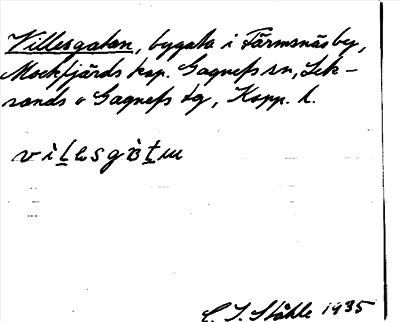 Villesgatan, bygata i Färmsnäs by,
Mockfjärds ksp. Gagnefs sn, Lek-
sands o Gagnefs tg, Kopp. l.
C. I. Ståhle 1935